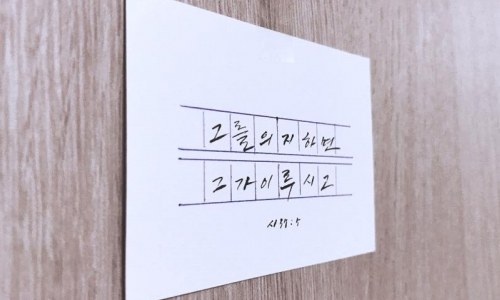 그를의지하면
그가이루시고
시37:5